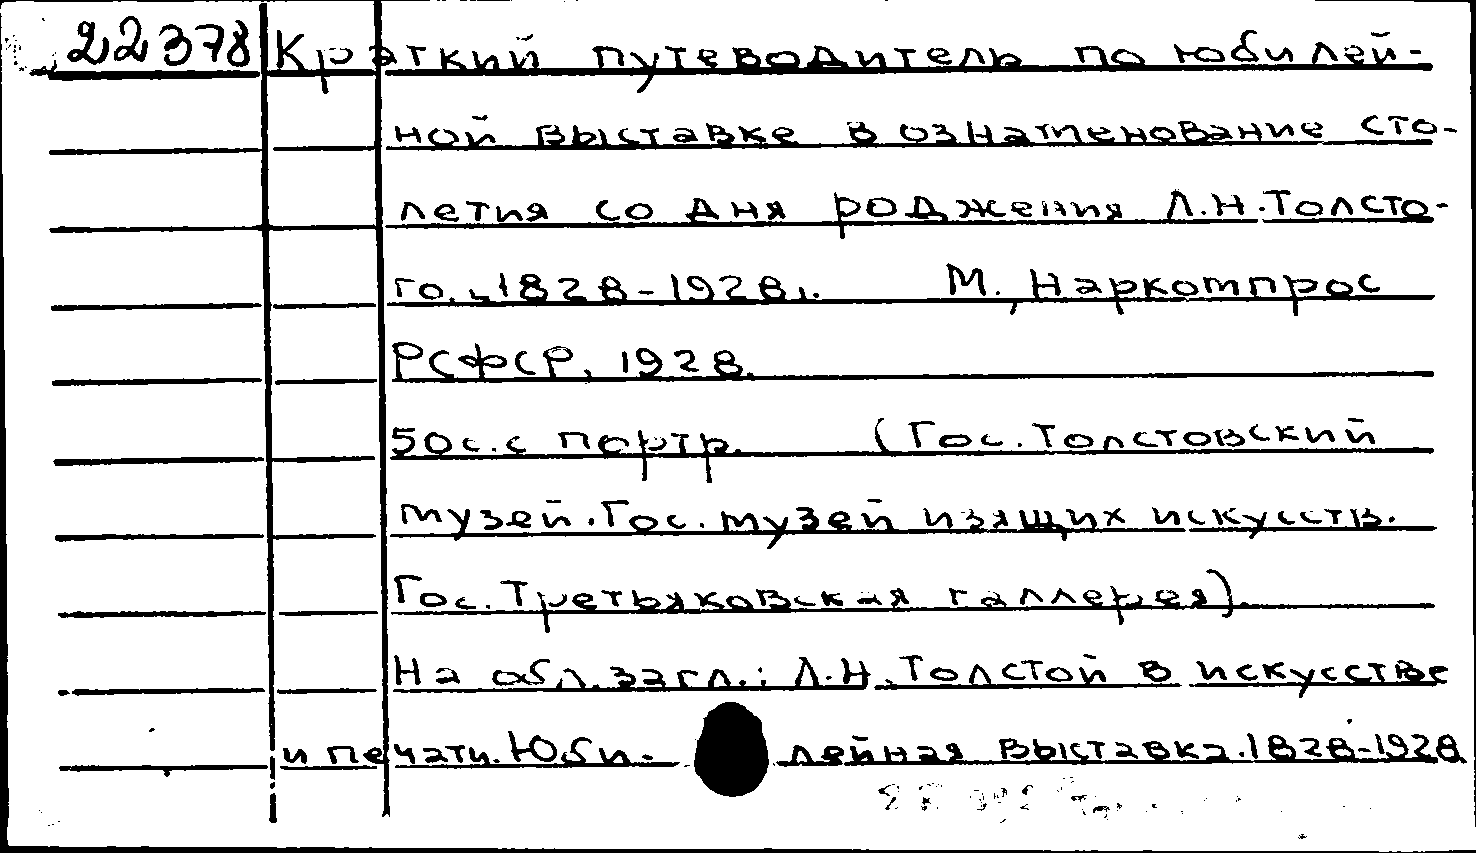 22378 Краткий путеводитель по юбилей-
ной выставке в ознаменование сто-
летия со дня роджения Л.Н.Толсто-
го. 1828-1928г. М., Наркомпрос
РСФСР, 1928.
50с. с портр. (Гос. Толстовский
музей. Гос. музей изящих искусств.
Гос. Третьяковская галлерея).
На обл. загл.: Л.Н. Толстой в искусстве
и печати. Юби- лейная выставка. 1828-1928